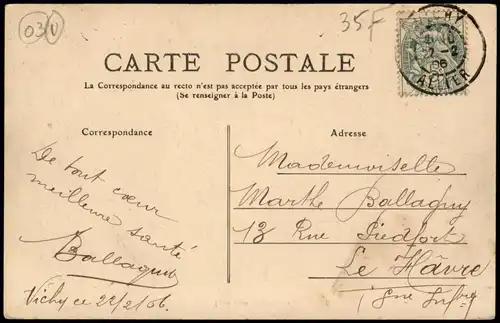 03V
35F
VICHY
ALLIER
CARTE POSTALE
La Correspondance au recto n'est pas acceptée par tous les pays étrangers
(Se renseigner à la Poste)
Correspondance
De tout cœur
meilleure santé
Ballaguy
Vichy ce 22/2/06.
Adresse
Mademoiselle
Marthe Ballaguy
13 Rue Piedfort
Le Hâvre